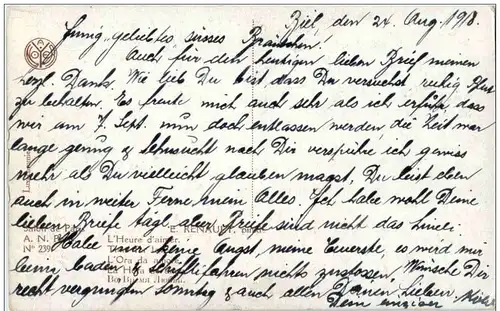 Biel, den 24. Aug. 1918.
Innig geliebtes, süsses Bräutchen!
Auch für den heutigen lieben Brief meinen
herzl. Dank. Wie lieb Du bist dass Du versuchst ruhig Blut
zu behalten. Es freute mich auch sehr als ich erfuhr dass
wir am 7. Sept. nun doch entlassen werden die Zeit war
lange genug & Sehnsucht nach Dir verspühre ich gewiss
mehr als Du vielleicht glauben magst. Du bist eben
auch in weiter Ferne mein Alles. Ich habe wohl Deine
lieben Briefe tägl. aber Briefe sind nicht das
Salon de Paris
E. RENAULT.
A. N. Paris
L'Heure d'aimer
Habe nur keine Angst, meine Teuerste, es wird mir
N° 239
L'Ora da
beim baden & schifflifahren nichts zustossen. Wünsche Dir
Во Время Любви
recht vergnügten Sonntag & auch allen Deinen Lieben.
Dein einziger